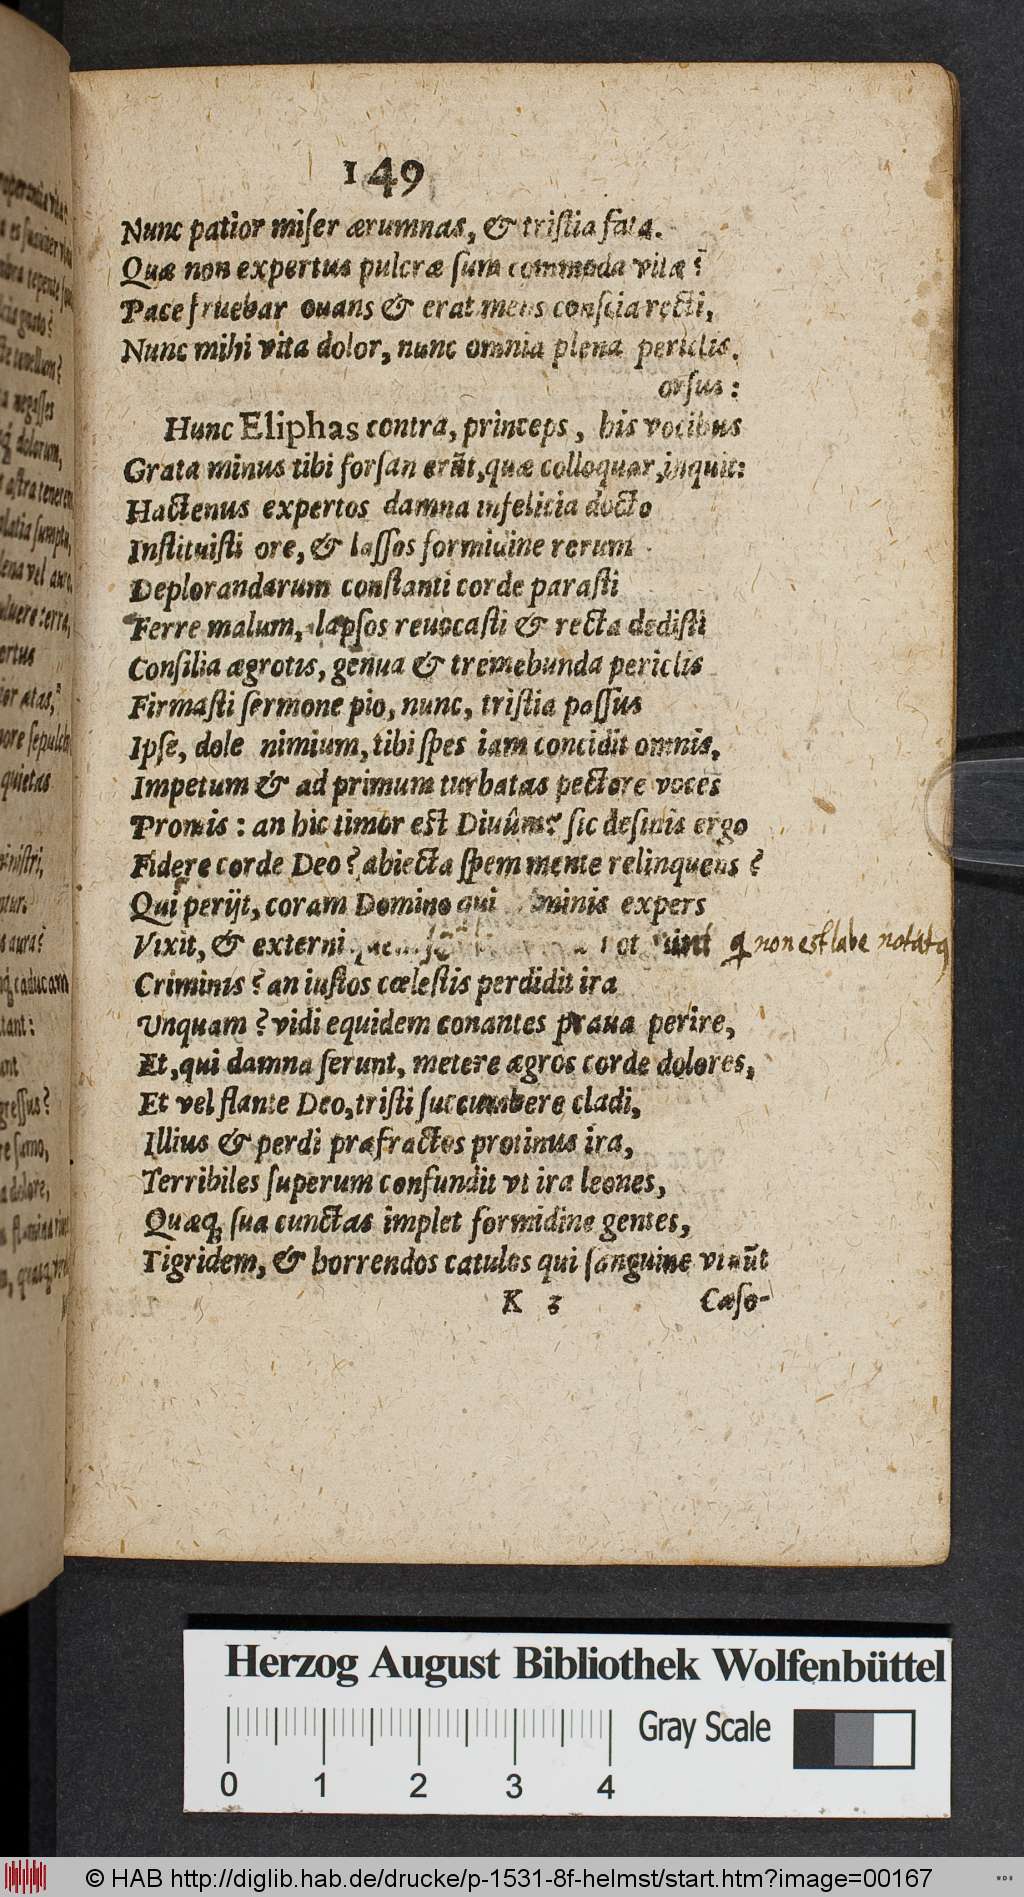 149
Nunc patior miſer ærumnas, & triſtia fata.
Quæ non expertus pulcræ ſum commoda vitæ?
Pace fruebar ouans & erat mens conſcia recti,
Nunc mihi vita dolor, nunc omnia plena periclis.
orſus:
Hunc Eliphas contra, princeps, his vocibus
Grata minus tibi forſan erũt, quæ colloquar, inquit:
Hactenus expertos damna infelicia docto
Inſtituiſti ore, & laſſos formidine rerum
Deplorandarum conſtanti corde paraſti
Ferre malum, lapſos reuocaſti & recta dediſti
Conſilia ægrotis, genua & tremebunda periclis
Firmaſti ſermone pio, nunc, triſtia paſſus
Ipſe, dole nimium, tibi ſpes iam concidit omnis,
Impetum & ad primum turbatas pectore voces
Promis: an hic timor eſt Diuûm? ſic deſinis ergo
Fidere corde Deo? abiecta ſpem mente relinquens?
Qui perijt, coram Domino qui minis expers
Vixit, & externi non eſt labe notat
Criminis? an iuſtos cœleſtis perdidit ira
Vnquam? vidi equidem conantes praua perire,
Et, qui damna ſerunt, metere ægros corde dolores,
Et vel flante Deo, triſti ſuccumbere cladi,
Illius & perdi præfractos protinus ira,
Terribiles ſuperum confundit vt ira leones,
Quæq; ſua cunctas implet formidine gentes,
Tigridem, & horrendos catulos qui ſanguine viuũt
K 3 Cæſo-
Herzog August Bibliothek Wolfenbüttel
Gray Scale
0 1 2 3 4
© HAB http://diglib.hab.de/drucke/p-1531-8f-helmst/start.htm?image=00167